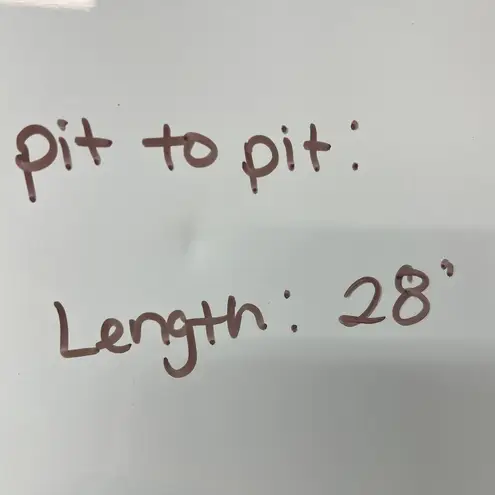 pit to pit:
Length: 28"